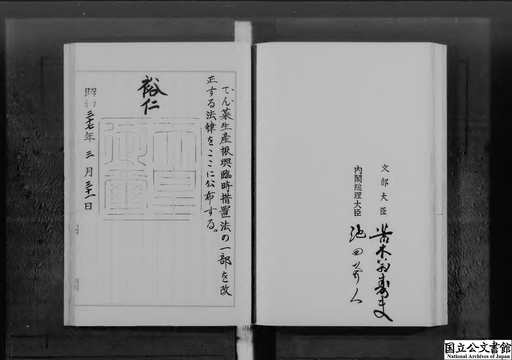 文部大臣 荒木萬壽夫
内閣総理大臣 池田勇人
てん菜生産振興臨時措置法の一部を改
正する法律をここに公布する。
裕仁
天皇
御璽
昭和三十七年三月三十一日
国立公文書館
National Archives of Japan